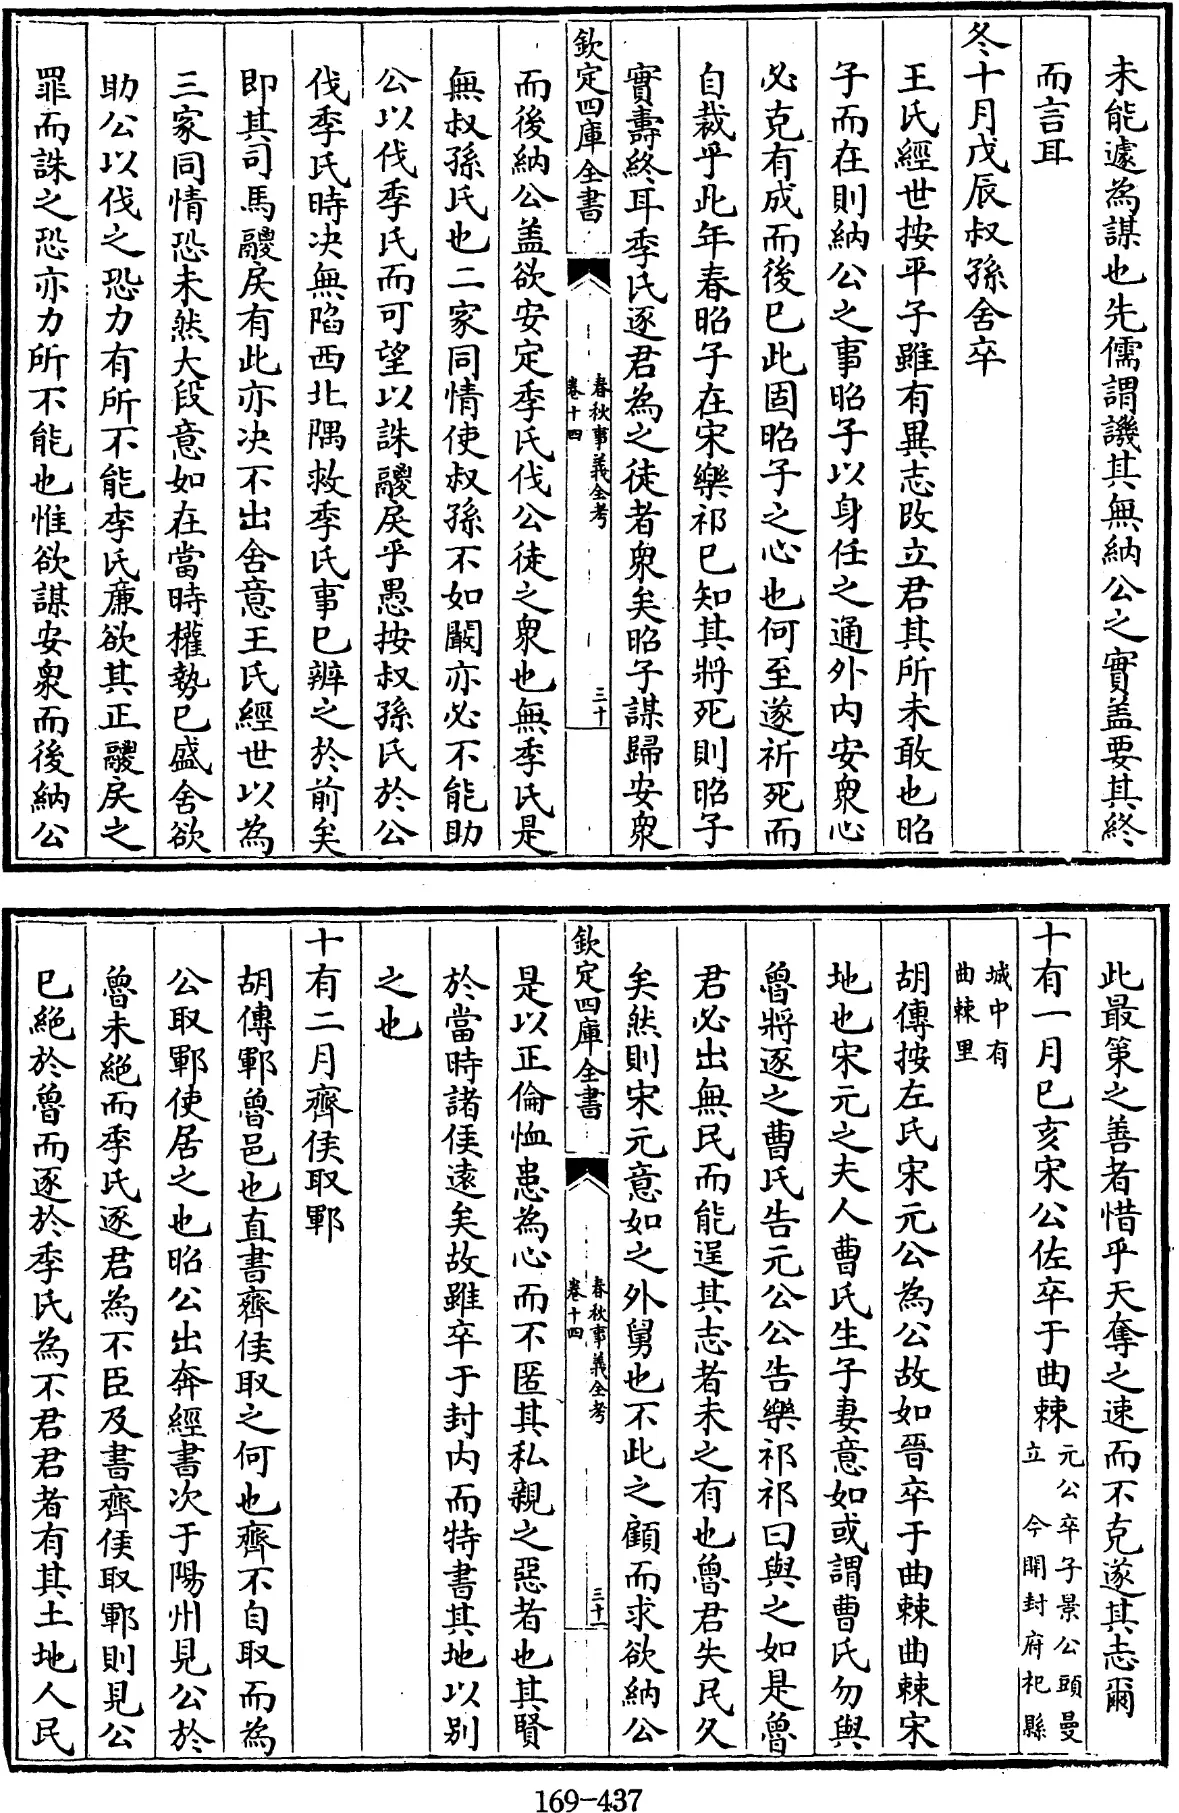 未能遽為謀也先儒謂譏其無納公之實盖要其終
而言耳
冬十月戊辰叔孫舍卒
王氏經世按平子雖有異志改立君其所未敢也昭
子而在則納公之事昭子以身任之通外内安衆心
必克有成而後已此固昭子之心也何至遂祈死而
自裁乎此年春昭子在宋樂祁已知其將死則昭子
實壽終耳季氏逐君為之徒者衆矣昭子謀歸安衆
欽定四庫全書
春秋事義全考
卷十四
三十
而後納公盖欲安定季氏伐公徒之衆也無季氏是
無叔孫氏也二家同情使叔孫不如闞亦必不能助
公以伐季氏而可望以誅鬷戾乎愚按叔孫氏於公
伐季氏時决無陷西北隅救季氏事已辨之於前矣
即其司馬鬷戾有此亦决不出舍意王氏經世以為
三家同情恐未然大段意如在當時權勢已盛舍欲
助公以伐之恐力有所不能李氏廉欲其正鬷戾之
罪而誅之恐亦力所不能也惟欲謀安衆而後納公
此最策之善者惜乎天奪之速而不克遂其志爾
十有一月己亥宋公佐卒于曲棘
元公卒子景公頭曼
立　今開封府杞縣
城中有
曲棘里
胡傳按左氏宋元公為公故如晉卒于曲棘曲棘宋
地也宋元之夫人曹氏生子妻意如或謂曹氏勿與
魯將逐之曹氏告元公公告樂祁祁曰與之如是魯
君必出無民而能逞其志者未之有也魯君失民久
矣然則宋元意如之外舅也不此之顧而求欲納公
欽定四庫全書
春秋事義全考
卷十四
三十一
是以正倫恤患為心而不匿其私親之惡者也其賢
於當時諸侯遠矣故雖卒于封内而特書其地以别
之也
十有二月齊侯取鄆
胡傳鄆魯邑也直書齊侯取之何也齊不自取而為
公取鄆使居之也昭公出奔經書次于陽州見公於
魯未絶而季氏逐君為不臣及書齊侯取鄆則見公
已絶於魯而逐於季氏為不君君者有其土地人民
169-437